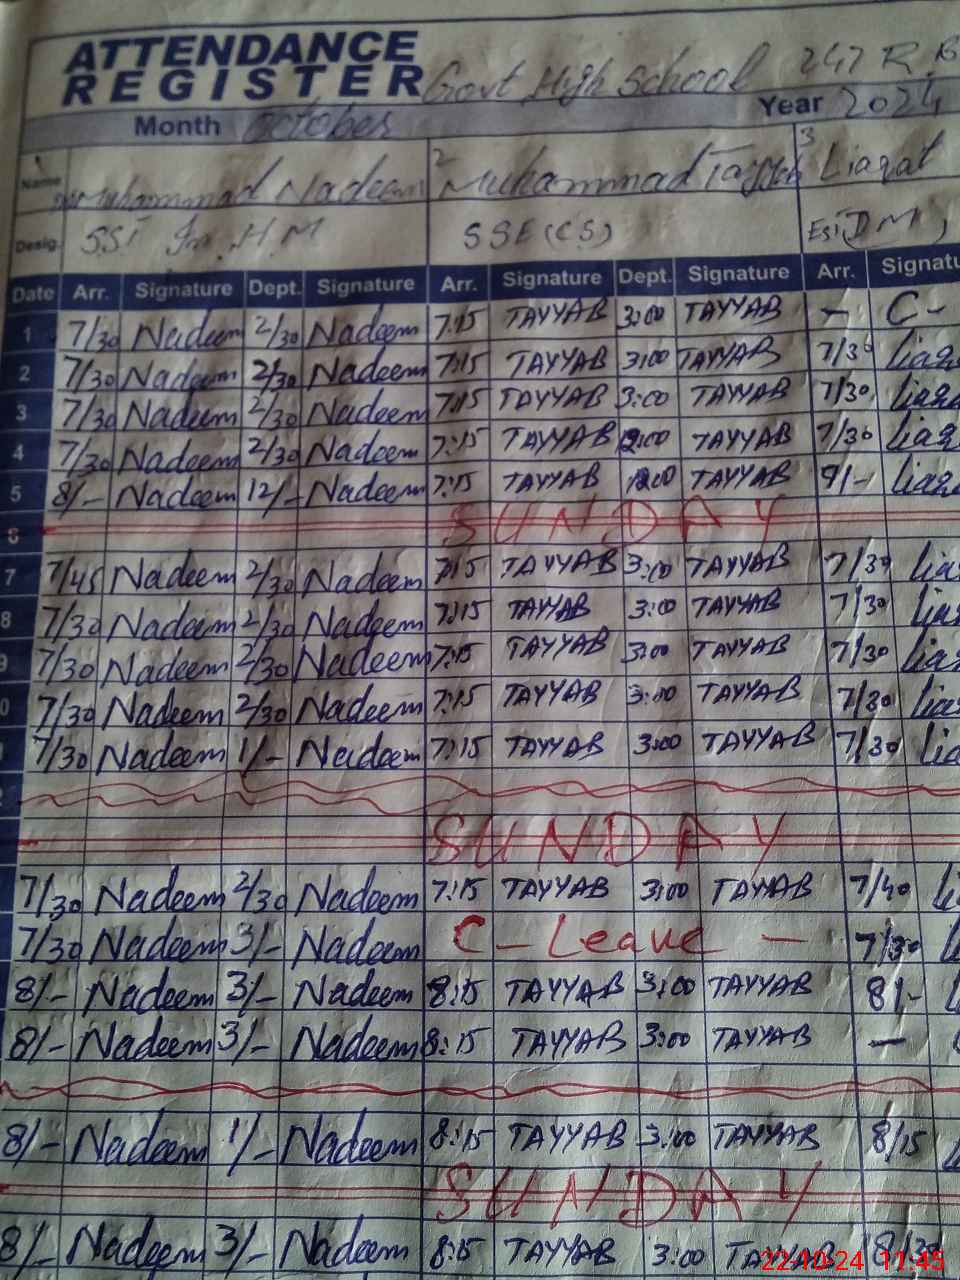 ATTENDANCE
REGISTER Govt High School 247 R.B
Month October Year 2024
1 2 3
Name Muhammad Nadeem Muhammad Tayyab Liaqat
Desig. SST In. H.M SSE (CS) EST (DM)
Date Arr. Signature Dept. Signature Arr. Signature Dept. Signature Arr. Signatu
1 7/30 Nadeem 2/30 Nadeem 7:15 TAYYAB 3:00 TAYYAB — C-
2 7/30 Nadeem 2/30 Nadeem 7:15 TAYYAB 3:00 TAYYAB 7/30 Liaqa
3 7/30 Nadeem 2/30 Nadeem 7:15 TAYYAB 3:00 TAYYAB 7/30 Liaqa
4 7/30 Nadeem 2/30 Nadeem 7:15 TAYYAB 12:00 TAYYAB 7/30 Liaqa
5 8/- Nadeem 12/- Nadeem 7:15 TAYYAB 12:00 TAYYAB 9/- Liaqa
6 SUNDAY
7 7/45 Nadeem 2/30 Nadeem 7:15 TAYYAB 3:00 TAYYAB 7/30 Lia
8 7/30 Nadeem 2/30 Nadeem 7:15 TAYYAB 3:00 TAYYAB 7/30 Lia
9 7/30 Nadeem 2/30 Nadeem 7:15 TAYYAB 3:00 TAYYAB 7/30 Lia
0 7/30 Nadeem 2/30 Nadeem 7:15 TAYYAB 3:00 TAYYAB 7/30 Lia
1 7/30 Nadeem 1/- Nadeem 7:15 TAYYAB 3:00 TAYYAB 7/30 Lia
2
SUNDAY
7/30 Nadeem 2/30 Nadeem 7:15 TAYYAB 3:00 TAYYAB 7/40 Li
7/30 Nadeem 3/- Nadeem C - Leave - 7/30 L
8/- Nadeem 3/- Nadeem 8:15 TAYYAB 3:00 TAYYAB 8/- L
8/- Nadeem 3/- Nadeem 8:15 TAYYAB 3:00 TAYYAB —
8/- Nadeem 1/- Nadeem 8:15 TAYYAB 3:00 TAYYAB 8/15 L
SUNDAY
8/- Nadeem 3/- Nadeem 8:15 TAYYAB 3:00 TAYYAB
22-10-24 11:45